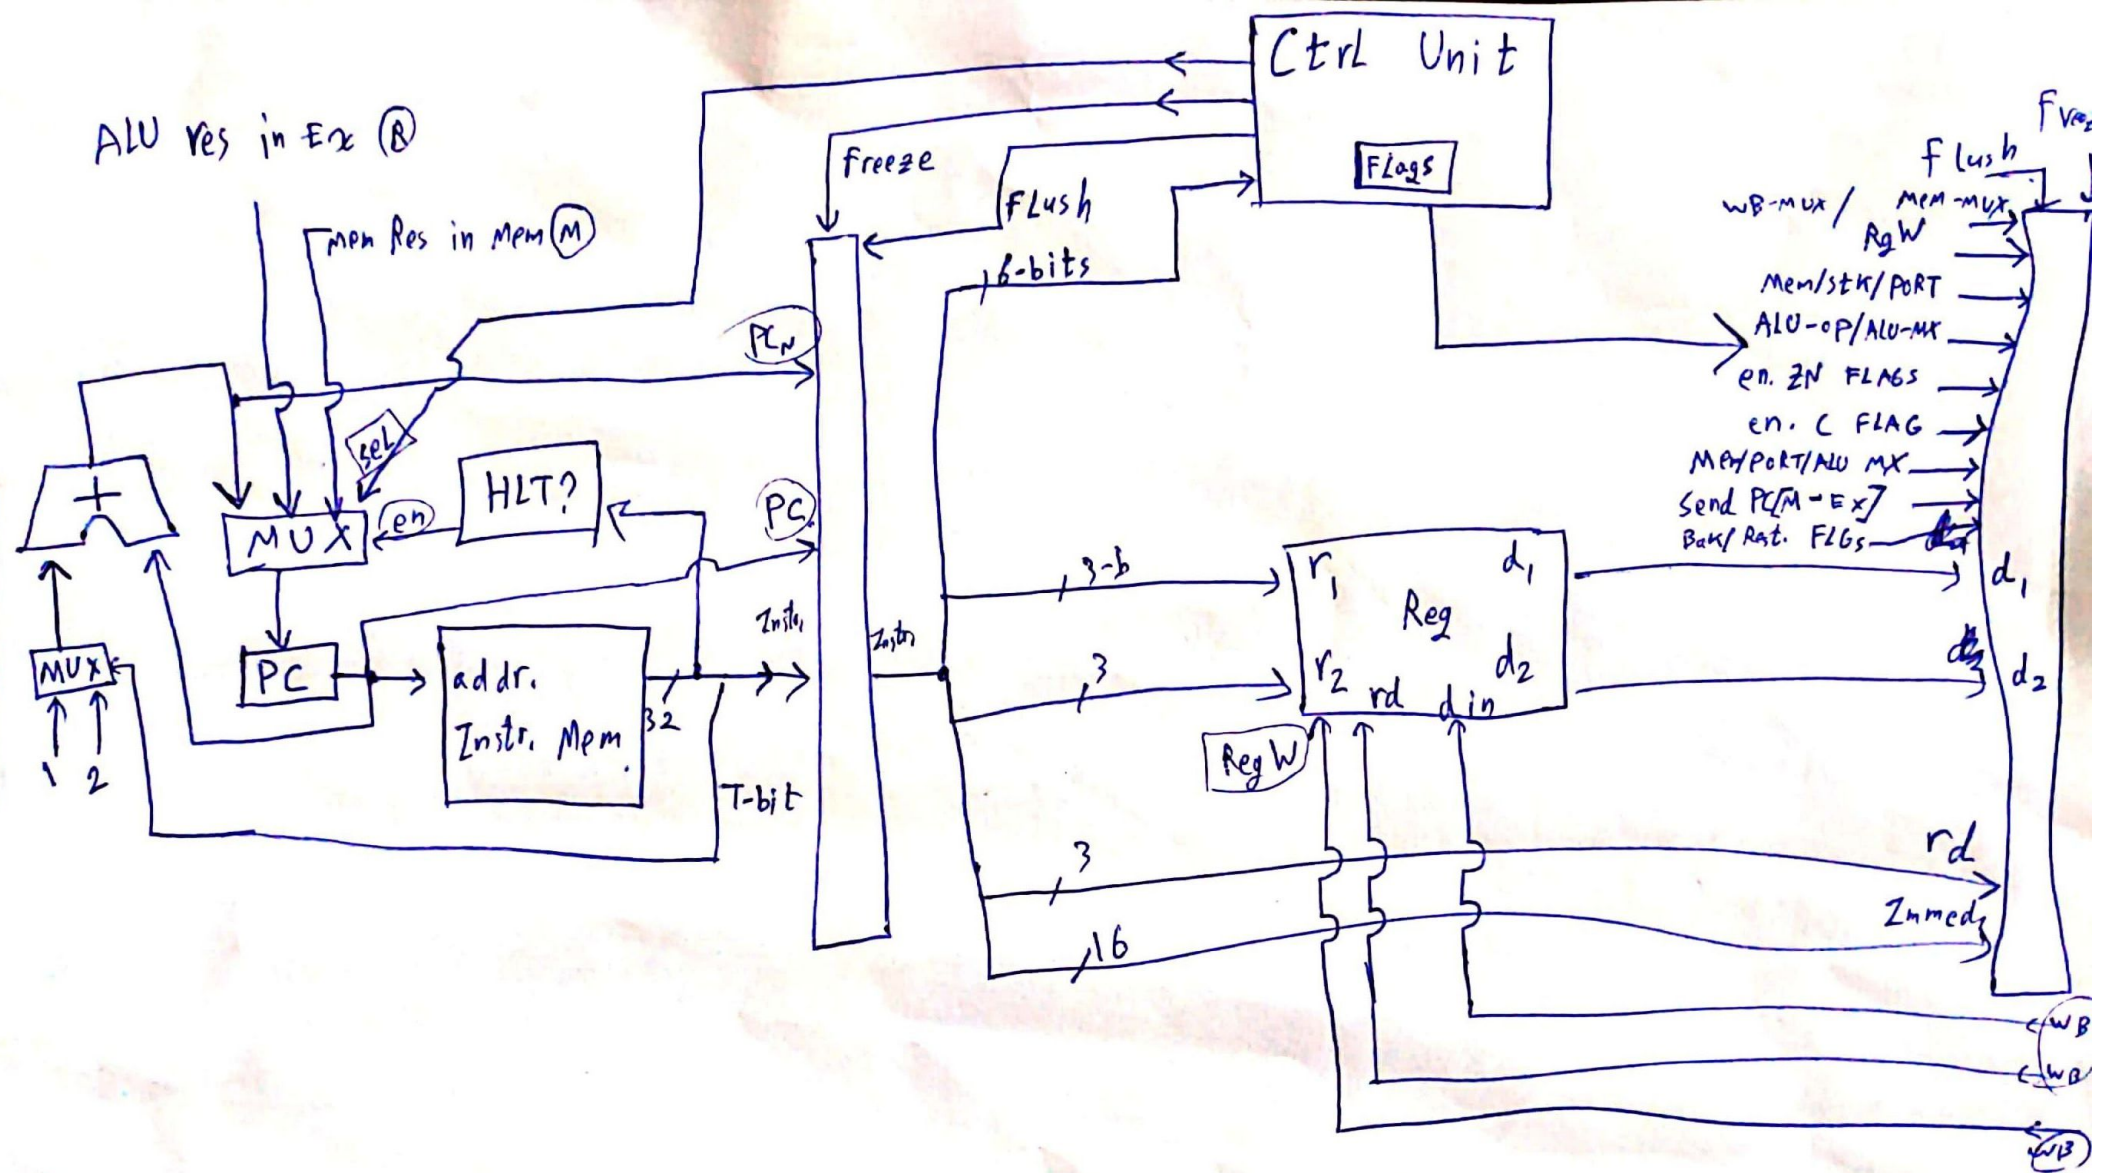 Ctrl Unit
FLags
ALU res in Ex B
Mem Res in Mem M
freeze
FLush
6-bits
PCN
sel
HLT?
en
PC
MUX
PC
MUX
1 2
+
addr.
Instr. Mem.
32
T-bit
Instr.
Instr.
3-b
3
3
16
r1 d1
Reg
r2 d2
rd d in
Reg W
flush
WB-MUX/ Mem-MUX
RgW
Mem/stk/PORT
ALU-OP/ALU-MX
en. ZN FLAGS
en. C FLAG
Mem/PORT/ALU MX
Send PC[M-Ex]
Bak/Rst. FLGs
d1
d2
rd
Immed.
WB
WB
WB